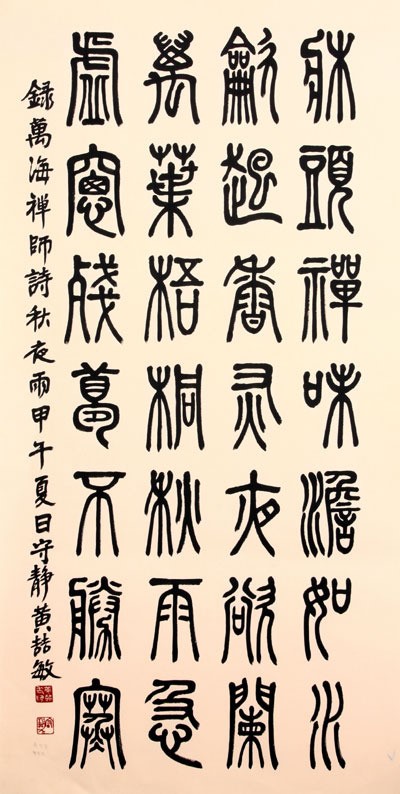 牀頭禪味澹如水
龡起香灰夜欲闌
萬葉梧桐秋雨急
虛窻殘夢不勝寒
錄萬海禪師詩秋夜雨甲午夏日守靜黃喆敏